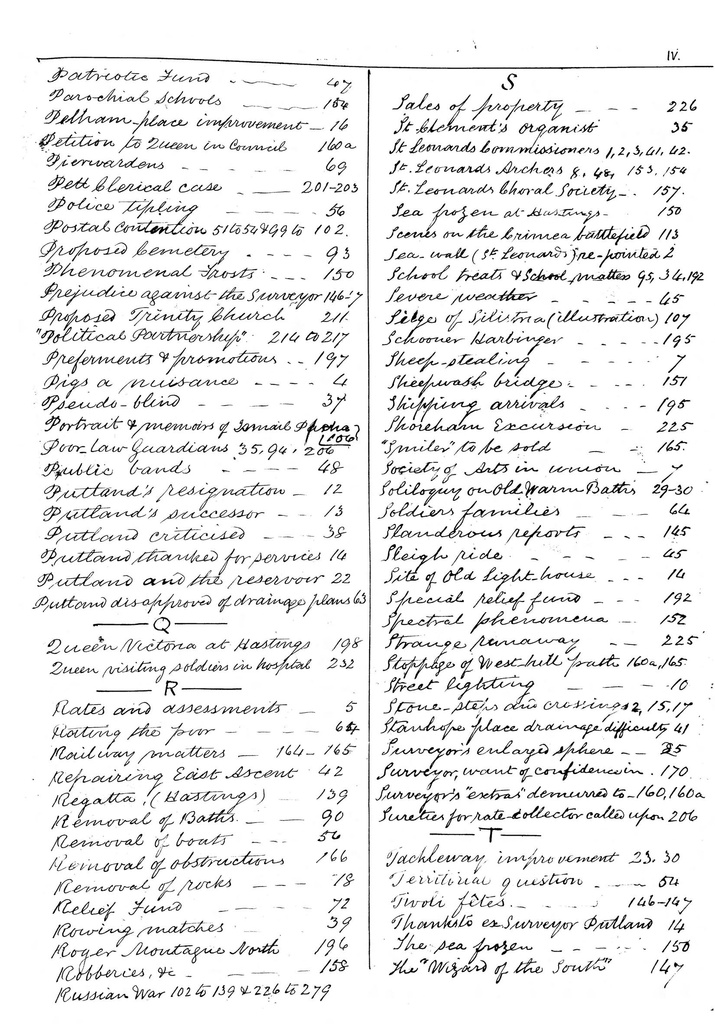 IV.
Patriotic Fund - - - 47
Parochial Schools - - - 154
Pelham-place improvement - 16
Petition to Queen in Council 160a
Pierwardens - - - 69
Pett Clerical case - - - 201-203
Police tipling - - - 56
Postal Contention 51 to 54 & 99 to 102
Proposed Cemetery - - - - 93
Phenomenal Frosts - - - 150
Prejudice against the Surveyor 146-7
Proposed Trinity Church 211
"Political Partnership" 214 to 217
Preferments & promotions - - 197
Pigs a nuisance - - - - 4
Pseudo-blind - - - 37
Portrait & memoirs of Ismail Pacha
Poor Law Guardians 35, 94, 206
Public bands - - - - 48
Putland's resignation - 12
Putland's successor - - 13
Putland criticised - - 38
Putland thanked for services 14
Putland and the reservoir 22
Putland disapproved of drainage plans 63
Q
Queen Victoria at Hastings 198
Queen visiting soldiers in hospital 232
R
Rates and assessments - - 5
Rating the poor - - - 64
Railway matters - - 164-165
Repairing East Ascent 42
Regatta, (Hastings) - - - 139
Removal of Baths - - - 90
Removal of boats - - - 56
Removal of obstructions 166
Removal of rocks - - - 18
Relief Fund - - - - 72
Rowing matches - - - 39
Roger Montague North 196
Robberies, &c - - - 158
Russian War 102 to 139 & 226 to 279
S
Sales of property - - - 226
St Clement's organist 35
St Leonards Commissioners 1, 2, 3, 41, 42.
St. Leonards Archers 8, 48, 153, 154
St. Leonards Choral Society - . 157.
Sea frozen at Hastings - 150
Scenes on the Crimea battlefield 113
Sea-wall (St Leonards) re-pointed 2
School treats & School matters 95, 34, 192
Severe weather - - - 45
Seige of Silistria (illustration) 107
Schooner Harbinger - - - 195
Sheep-stealing - - - 7
Sheepwash bridge - - - - 151
Shipping arrivals - - - 195
Shoreham Excursion - - 225
"Smiler" to be sold - - 165.
Society of Arts in union - 7
Soliloguy on Old Warm Baths 29-30
Soldiers families - - - 64
Slanderous reports - - - 145
Sleigh ride - - - - 45
Site of Old Light-house - - - 14
Special relief fund - - - 192
Spectral phenomena - - 152
Strange runaway - - - 225
Stoppage of West-hill paths 160a, 165
Street lighting - - - 10
Stone-steps and crossings 2, 15, 17
Stanhope place drainage difficulty 41
Surveyor's enlarged sphere - - 25
Surveyor, want of confidence in . 170
Surveyor's "extras" demurred to - 160, 160a
Sureties for rate collector called upon 206
T
Tackleway improvement 23. 30
Territorial question - - - 54
Tivoli fêtes - - - 146-147
Thanks to ex Surveyor Putland 14
The sea frozen - - - - 150
The "Wizard of the South" 147